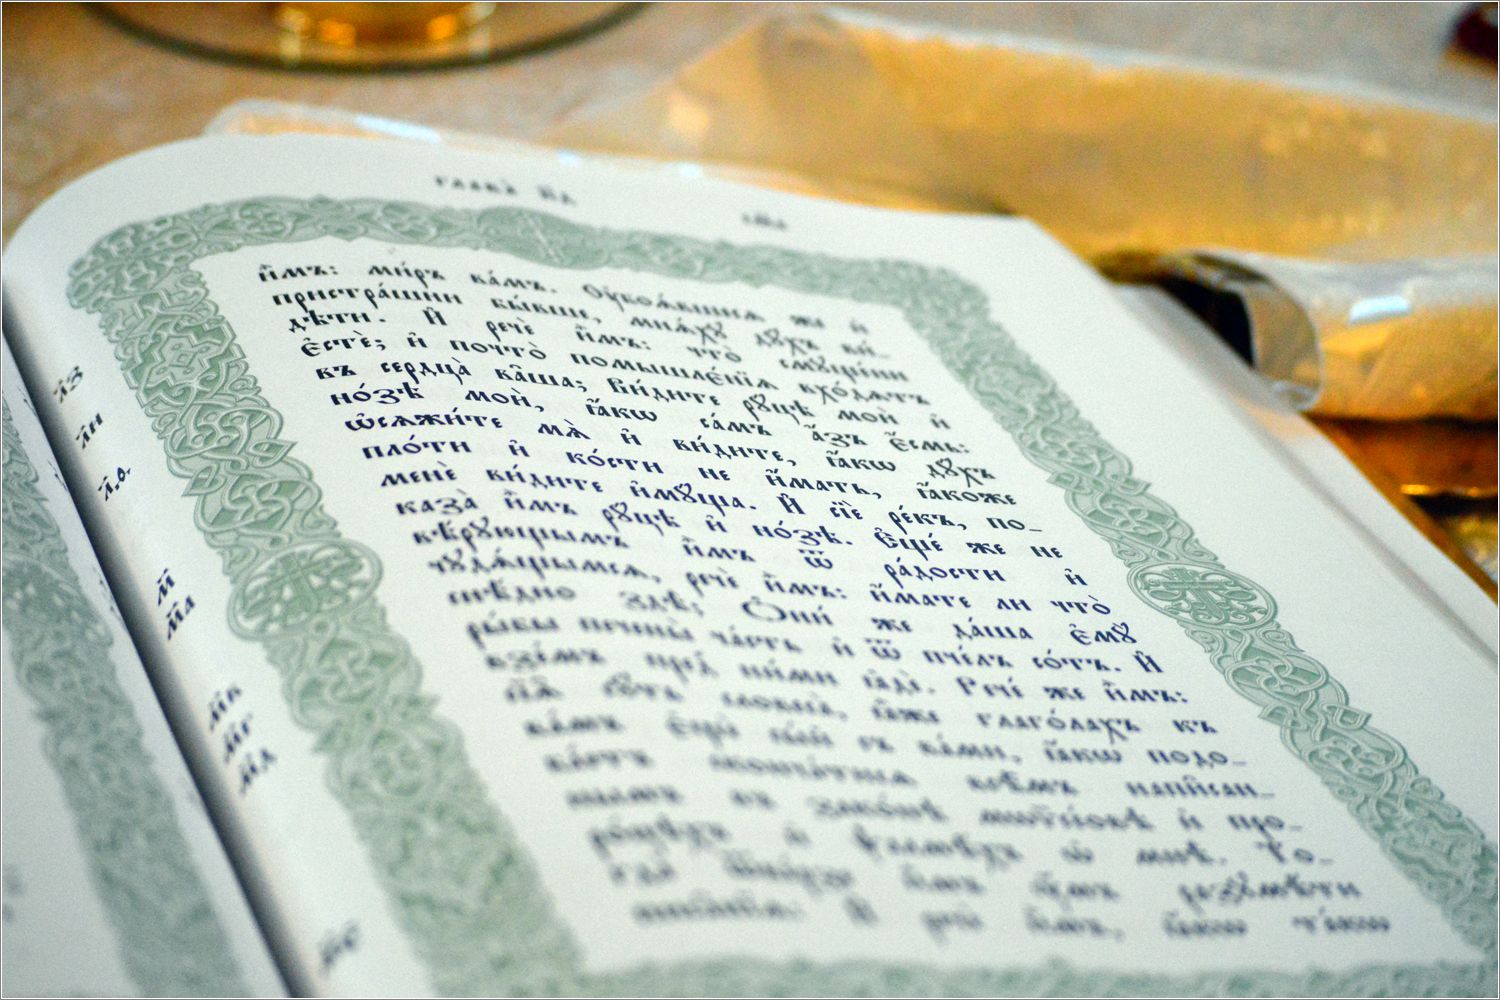 глава̀ к҃д
и҆̀мъ: ми́ръ ва́мъ. Оу҆боѧ́вшесѧ же и҆
л҃з пристра́шни бы́вше, мнѧ́хꙋ дꙋ́хъ ви́-
дѣти. И҆ речѐ и҆̀мъ: что̀ смꙋще́ни
л҃и є҆стѐ; и҆ почто̀ помышлє́нїѧ вхо́дѧтъ
въ сердца̀ ва̑ша; Ви́дите рꙋ́цѣ моѝ и҆
л҃.ѳ. но́зѣ моѝ, ꙗ҆́кѡ са́мъ а҆́зъ є҆́смь:
ѡ҆сѧжи́те мѧ̀ и҆ ви́дите, ꙗ҆́кѡ дꙋ́хъ
пло́ти и҆ ко́сти не и҆́мать, ꙗ҆́коже
менѐ ви́дите и҆мꙋ́ща. И҆ сїѐ ре́къ, по-
м҃ каза̀ и҆̀мъ рꙋ́цѣ и҆ но́зѣ. Є҆ще́ же не
м҃а вѣ́рꙋющымъ и҆̀мъ ѿ ра́дости и҆
чꙋдѧ́щымсѧ, речѐ и҆̀мъ: и҆́мате ли что̀
снѣ́дно здѣ̀; Ѻ҆ни́ же да́ша є҆мꙋ̀
м҃в ры́бы пече́ны ча́сть и҆ ѿ пче́лъ со́тъ. И҆
м҃г взе́мъ пред̾ ни́ми ꙗ҆дѐ. Рече́ же и҆̀мъ:
м҃д сїѧ̑ сꙋ́ть словеса̀, ꙗ҆̀же глаго́лахъ къ
ва́мъ є҆щѐ сы́й съ ва́ми, ꙗ҆́кѡ подо-
ба́етъ сконча́тисѧ всѣ̑мъ напи̑сан-
нымъ въ зако́нѣ мѡѷсе́овѣ и҆ про-
ро́цѣхъ и҆ ѱалмѣ́хъ ѡ҆ мнѣ̀. То-
м҃є гда̀ ѿве́рзе и҆̀мъ ᲂу҆́мъ разꙋмѣ́ти
писа̑нїѧ. И҆ речѐ и҆̀мъ, ꙗ҆́кѡ та́кѡ